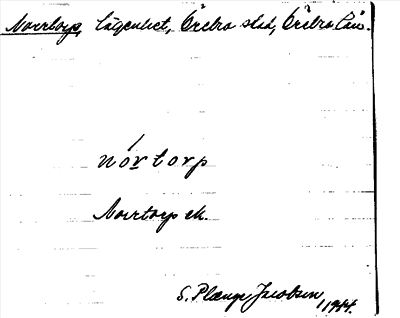 Norrtorp, lägenhet, Örebro stad, Örebro län.
nórtorp
Norrtorp ek.
S. Plænge Jacobson, 1944.